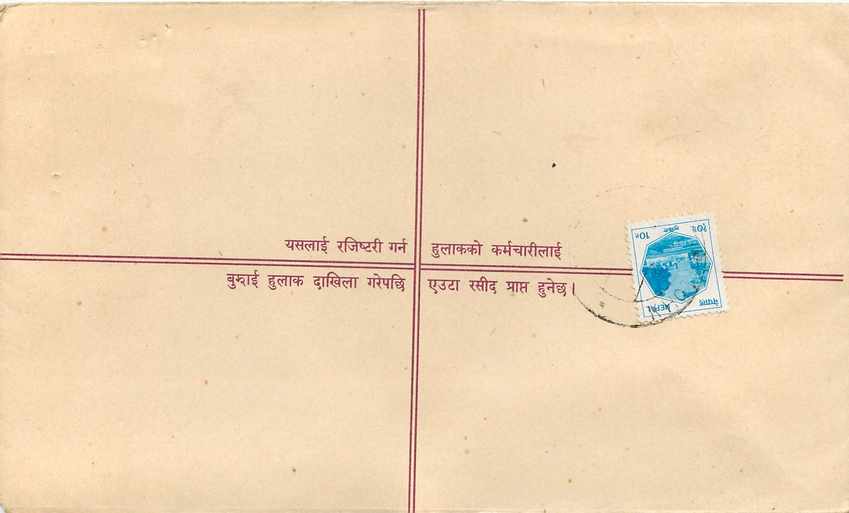 यसलाई रजिष्टरी गर्न हुलाकको कर्मचारीलाई
बुझाई हुलाक दाखिला गरेपछि एउटा रसीद प्राप्त हुनेछ।
नेपाल NEPAL
10p. १०पै.